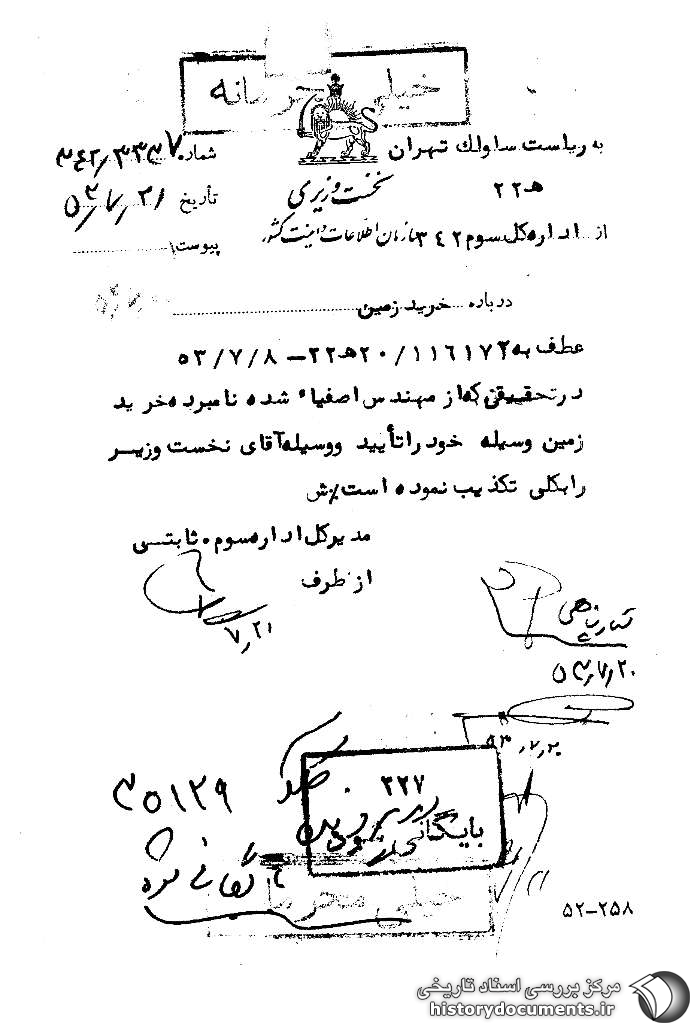 خیلی محرمانه
به ریاست ساواک تهران
شماره ۳۴۲/۳۳۳۷
ه‍ ۲۲
نخست وزیری
تاریخ ۵۳/۷/۲۱
از اداره کل سوم ۳۴۲
سازمان اطلاعات و امنیت کشور
پیوست
درباره خرید زمین
عطف به ۲۰/۱۱۶۱۷۲ه‍ ۲۲ – ۵۳/۷/۸
در تحقیقی که از مهندس اصفیاء شده نامبرده خرید
زمین وسیله خود را تأیید و وسیله آقای نخست وزیر
را بکلی تکذیب نموده است٪ش
مدیر کل اداره سوم . ثابتی
از طرف
۷/۲۱
۵۳/۷/۲۰
۵۳/۷/۲۰
۲۲۷
بایگانی
۳۵۱۲۹
بایگانی شود
خیلی محرمانه
۵۲-۲۵۸
مرکز بررسی اسناد تاریخی
historydocuments.ir